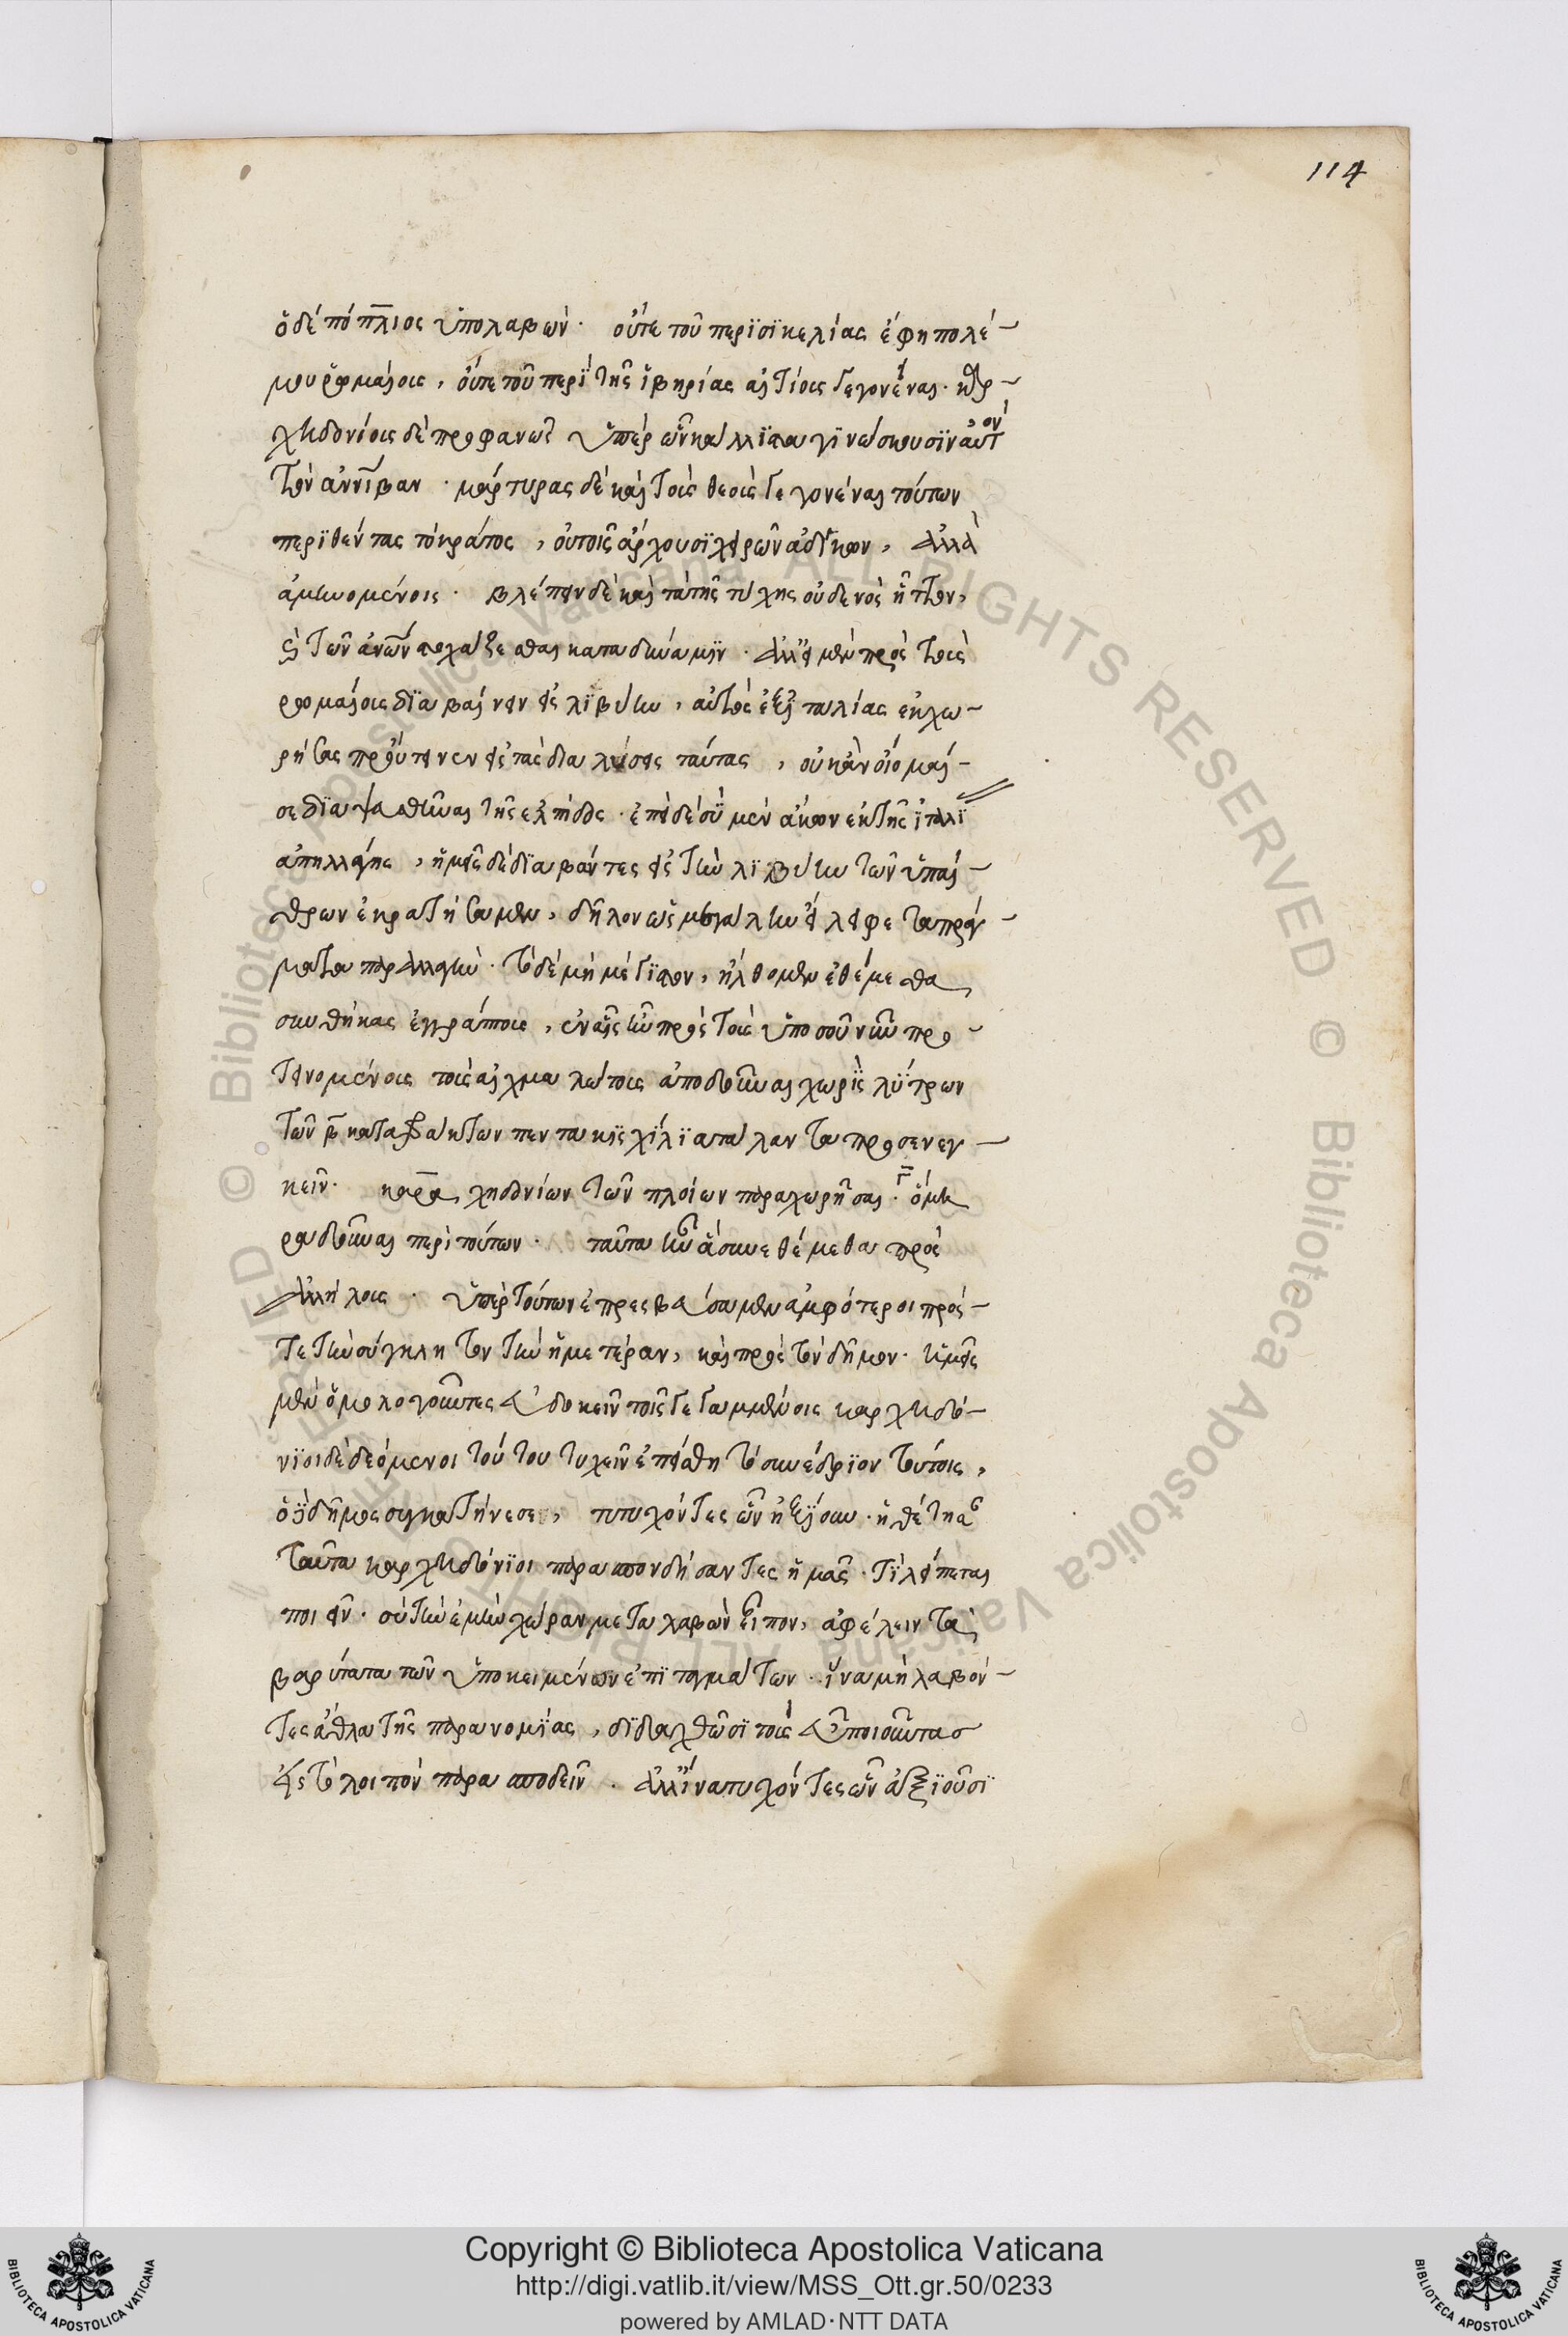 114
ὁ δὲ πόπλιος ὑπολαβὼν· οὔτε τοῦ περὶ σικελίας ἔφη πολέ-
μου ῥωμαίοις, οὔτε τοῦ περὶ τῆς ἰβηρίας αἰτίοις γεγονέναι· καρ-
χηδονίοις δὲ προφανῶς ὑπὲρ ὧν κάλλιστα γινώσκουσιν αὐτὸν
τὸν ἀννίβαν· μάρτυρας δὲ καὶ τοὺς θεοὺς γεγονέναι τούτων
περιθέντας τὸ κράτος, οὐ τοῖς ἄρχουσι χειρῶν ἀδίκων, ἀλλὰ
ἀμυνομένοις· βλέπειν δὲ καὶ τὰ τῆς τύχης οὐδενὸς ἧττον,
τῶν ἀνων στοχάζεσθαι κατὰ δύναμιν· ἀλλ' εἰ μὲν πρὸς τοὺς
ῥωμαίοις διαβαίνειν εἰς λιβύην, αὐτὸς ἐξ ἰταλίας ἐκχω-
ρήσας προύτεινεν εἰς τὰς διαλύσεις ταύτας, οὐκ ἂν οἴομαί-
σε διαψευσθῆναι τῆς ἐλπίδος· ἐπεὶ δὲ σὺ μὲν ἄκων ἐκ τῆς ἰταλί
ἀπηλλάγης, ἡμεῖς δὲ διαβάντες εἰς τὴν λιβύην τῶν ὑπαί-
θρων ἐκρατήσαμεν, δῆλον ὡς μεγάλην εἴληφε τὰ πράγ-
ματα παραλλαγήν· τὸ δὲ μὴ μέγιστον, ἤλθομεν ἐθέμεθα
συνθήκας ἐγγράπτους, ἐν αἷς ἦν πρὸς τοῖς ὑπὸ σοῦ νῦν προ-
τεινομένοις τοὺς αἰχμαλώτοις ἀποδοῦναι χωρὶς λύτρων
τῶν πλοίων παραχωρῆσαι· ὅμη
ρα δοῦναι περὶ τούτων· ταῦτα ἦν ἃ συνεθέμεθα πρὸς
ἀλλήλοις· ὑπὲρ τούτων ἐπρεσβεύσαμεν ἀμφότεροι πρός-
τε τὴν σύγκλητον τὴν ἡμετέραν, καὶ πρὸς τὸν δῆμον· ἡμεῖς
μὲν ὁμολογοῦντες εὐδοκεῖν τοῖς γεγραμμένοις καρχηδό-
νιοι δὲ δεόμενοι τούτου τυχεῖν ἐπείσθη τὸ συνέδριον τούτοις,
ὁ δὲ δῆμος συγκατήνεσε, τυχόντες ὧν ἠξίουν· ἠθέτησαν
ταῦτα καρχηδόνιοι παρασπονδήσαντες ἡμᾶς· τί λείπεται
ποιεῖν· σὺ τὴν ἐμὴν χώραν μεταλαβὼν εἶπον, ἀφέλειν τὰ
βαρύτατα τῶν ὑποκειμένων ἐπιταγμάτων· ἵνα μὴ λαβόν-
τες ἆθλα τῆς παρανομίας, διδαχθῶσι τοὺς εὖ ποιοῦντασ
εἰς τὸ λοιπὸν παρασποδεῖν· ἀλλ' ἵνα τυχόντες ὧν ἀξιοῦσι
Copyright © Biblioteca Apostolica Vaticana
http://digi.vatlib.it/view/MSS_Ott.gr.50/0233
powered by AMLAD·NTT DATA